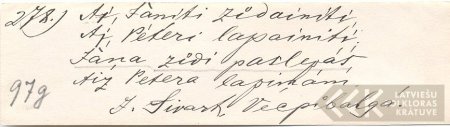 278.) Aj, Jāniti ziedainiti,
Aj, Pēteri lapainiti,
Jāņa ziedi paslepās
Aiz Pētera lapiņām
97g
J. Sivark Vecpiebalga
LATVIEŠU
FOLKLORAS
KRĀTUVE